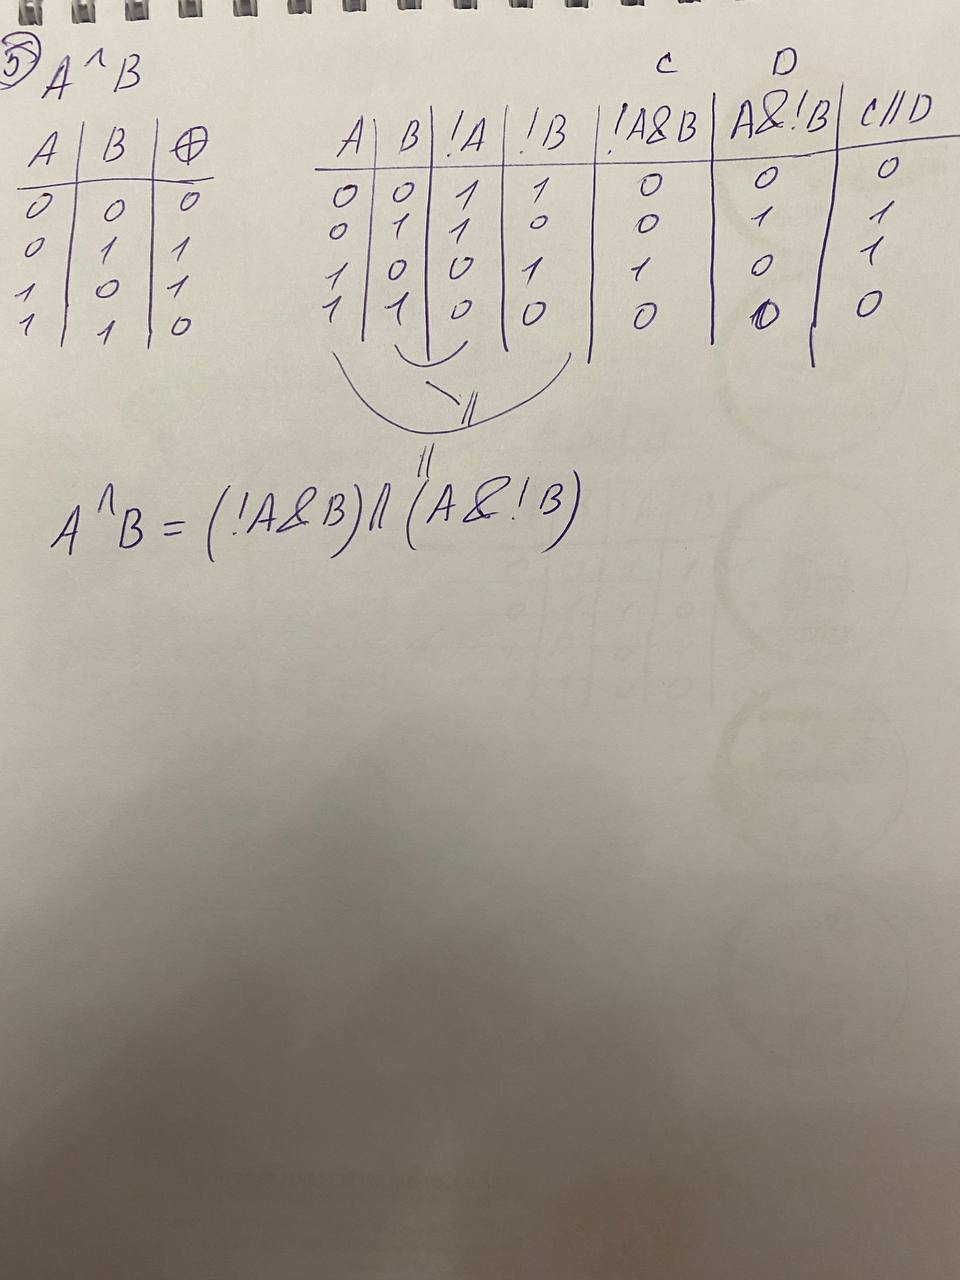 5 A^B
C D
A B ⊕
0 0 0
0 1 1
1 0 1
1 1 0
A B !A !B !A&B A&!B C||D
0 0 1 1 0 0 0
0 1 1 0 0 1 1
1 0 0 1 1 0 1
1 1 0 0 0 0 0
||
||
A^B = (!A&B)||(A&!B)